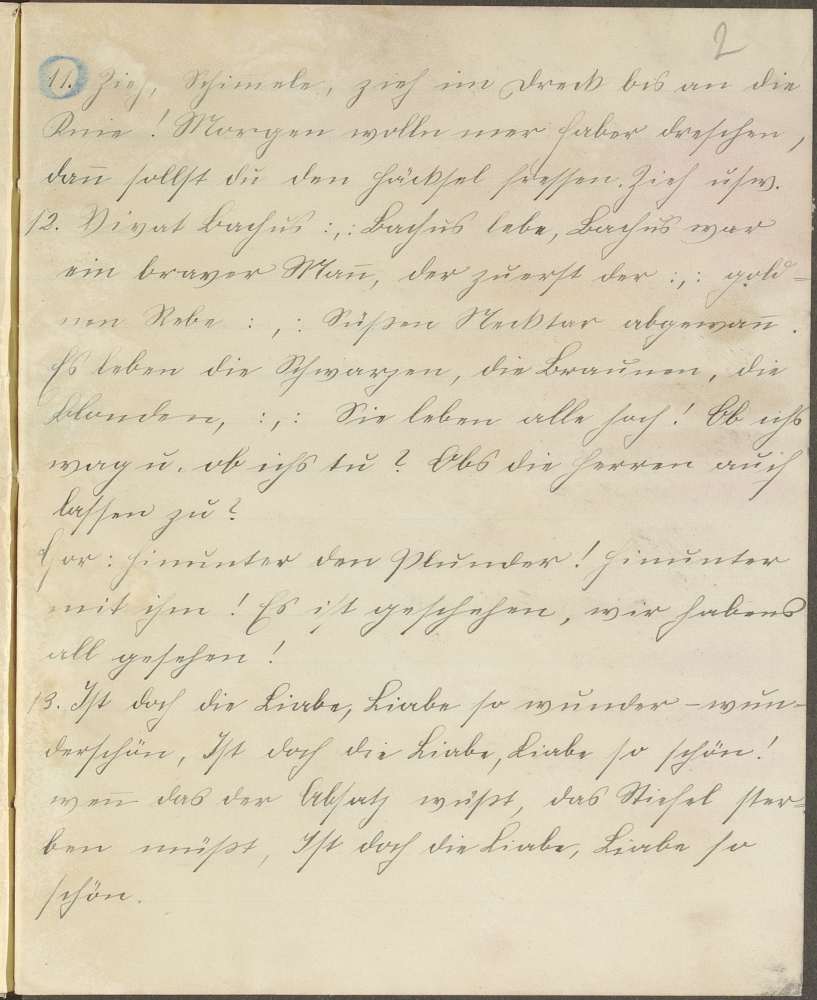 2
11. Zieh, Schimele, zieh im Dreck bis an die
Knie! Morgen wolln mer Haber dreschen,
dan̄ sollst du den Häcksel fressen. Zieh usw.
12. Vivat Bachus :,: Bachus lebe, Bachus war
ein braver Man̄, der zuerst der :,: gold-
nen Rebe :,: Süßen Necktar abgewan̄.
Es leben die Schwarzen, die Braunen, die
Blonden, :,: Sie leben alle hoch! Ob ichs
wag u. ob ichs tu? Obs die Herren auch
lassen zu?
Chor: Hinunter den Plunder! Hinunter
mit ihm! Es ist geschehen, wir habens
all gesehen!
13. Ist doch die Liabe, Liabe so wunder-wun-
derschön, Ist doch die Liabe, Liabe so schön!
wen̄ das der Absatz wüßt, das Stiefel ster-
ben müßt, Ist doch die Liabe, Liabe so
schön.